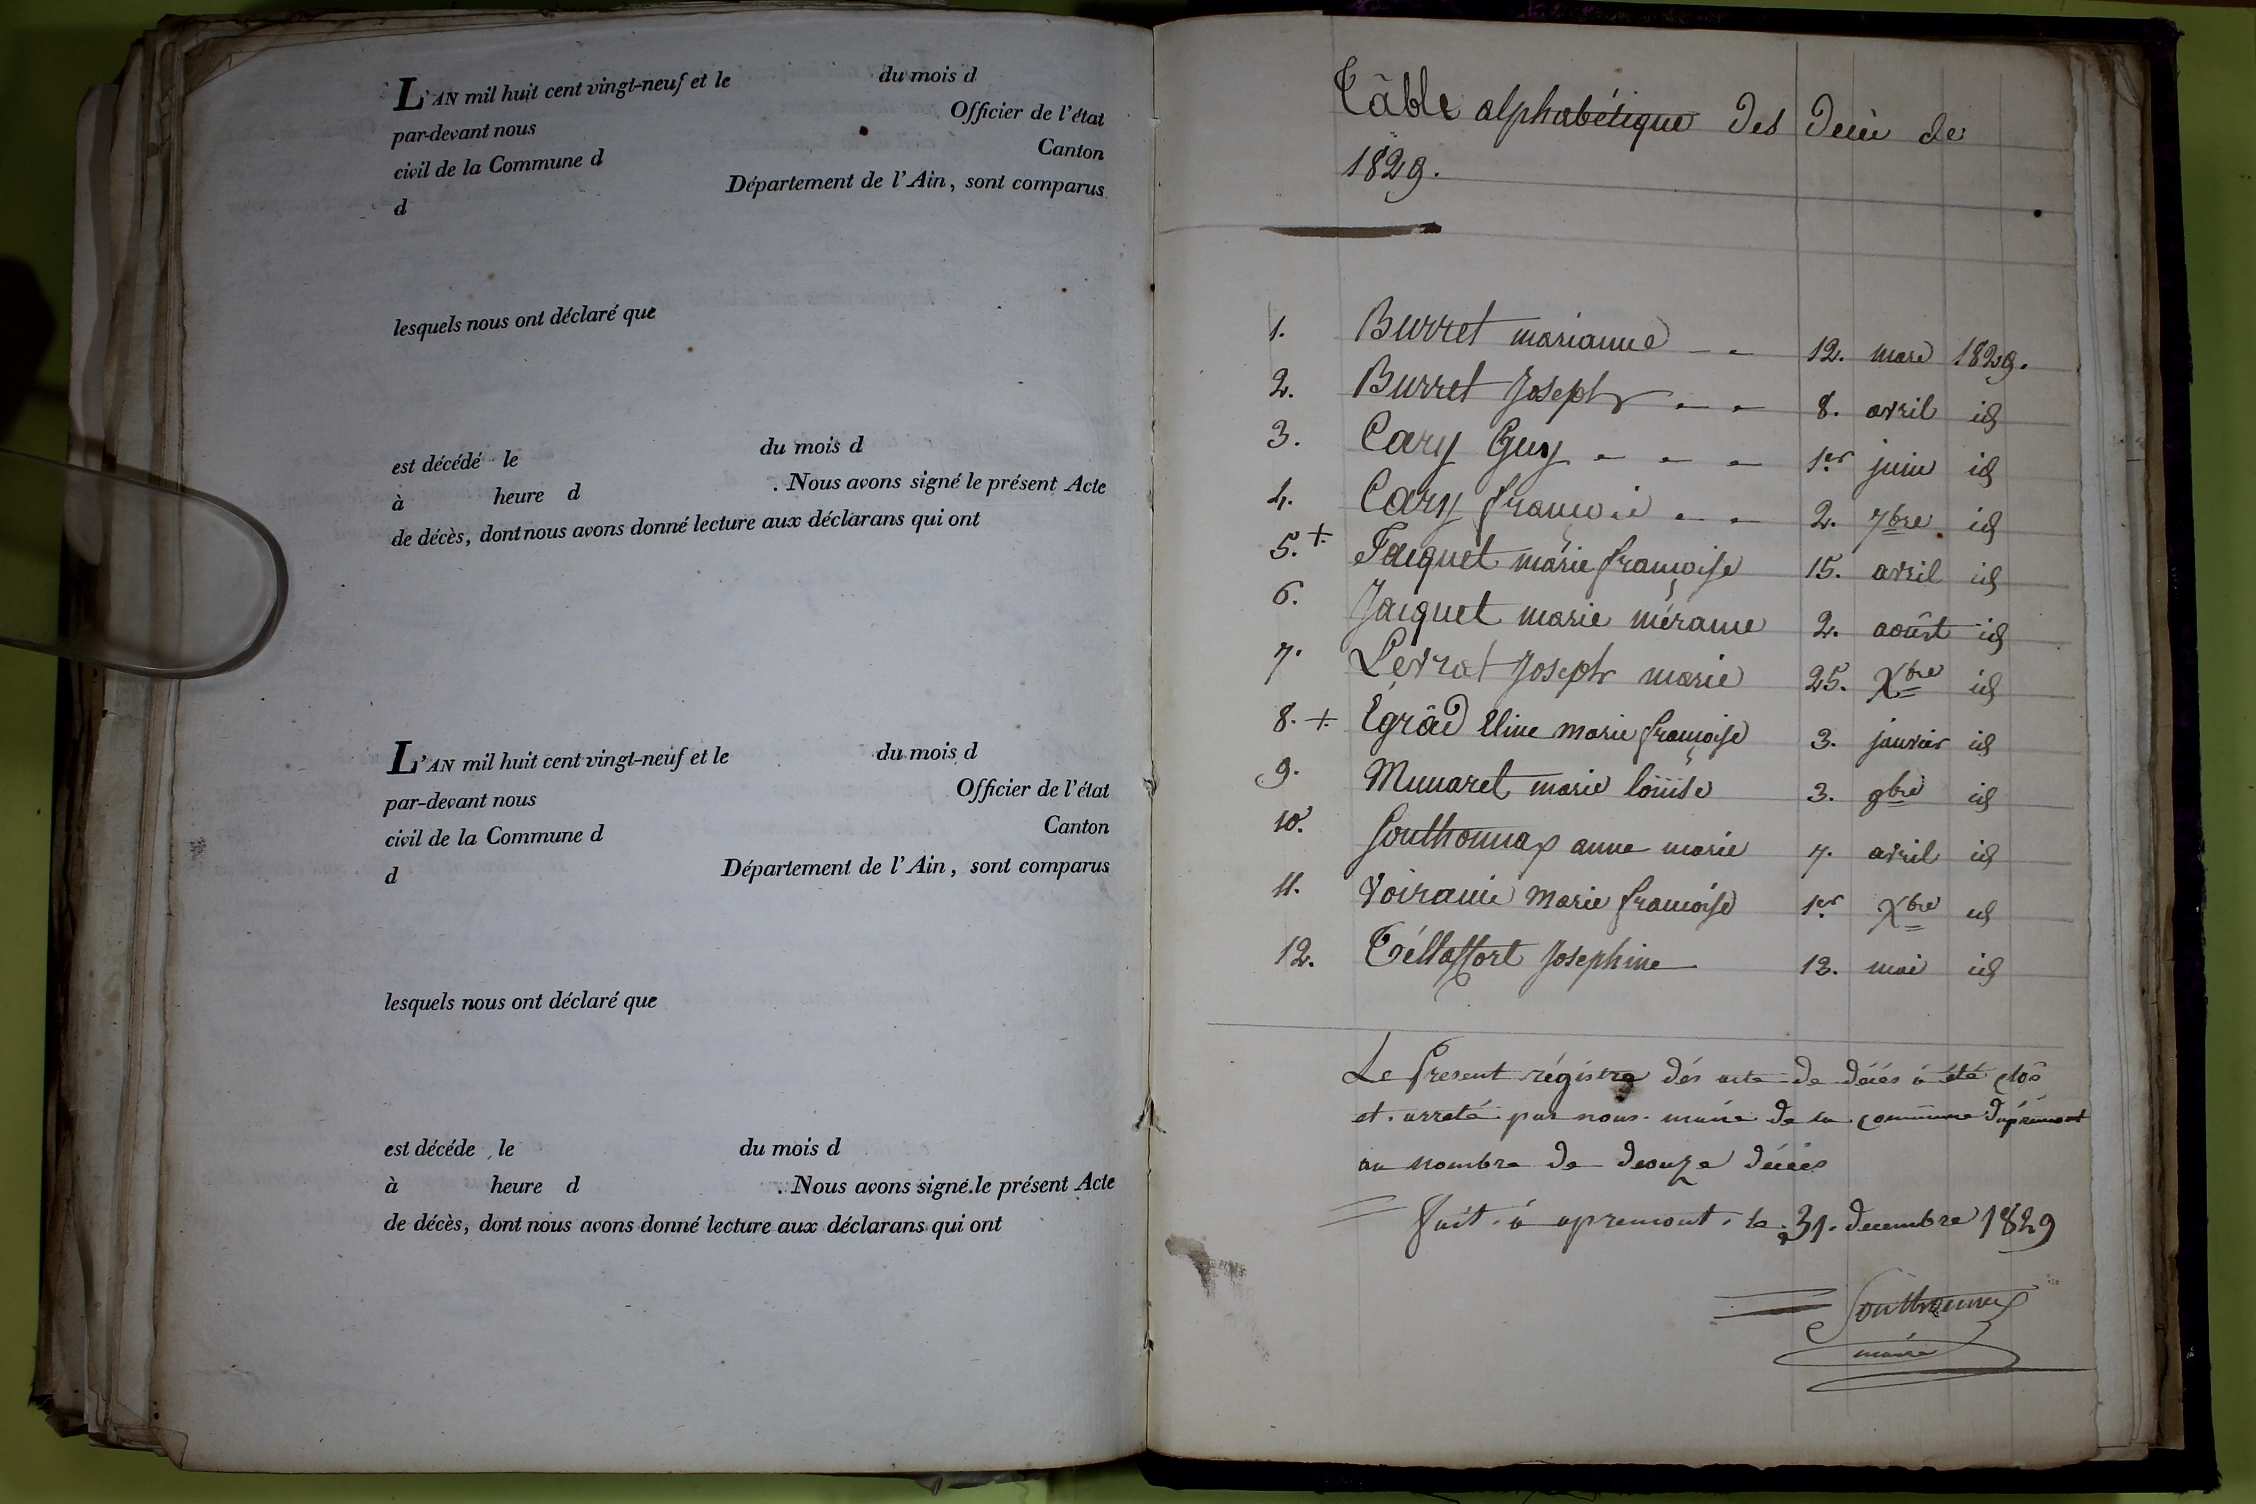 L'AN mil huit cent vingt-neuf et le du mois d
par-devant nous Officier de l'état
civil de la Commune d Canton
d Département de l'Ain, sont comparus
lesquels nous ont déclaré que
est décédé le du mois d
à heure d . Nous avons signé le présent Acte
de décès, dont nous avons donné lecture aux déclarans qui ont
L'AN mil huit cent vingt-neuf et le du mois d
par-devant nous Officier de l'état
civil de la Commune d Canton
d Département de l'Ain, sont comparus
lesquels nous ont déclaré que
est décéde le du mois d
à heure d . Nous avons signé le présent Acte
de décès, dont nous avons donné lecture aux déclarans qui ont
Tâble alphabétique des de
1829.
1. Burret marianne 12. mars 1829.
2. Burret Joseph 8. avril id
3. Cary Guy 1er juin id
4. Cary françois 2. 7bre id
5. + Jacquet marie françoise 15. avril id
6. Jacquet marie 2. août id
7. Levrat Joseph marie 25. Xbre id
8. + marie françoise 3. janvier id
9. Munaret marie louise 3. 9bre id
10. Gouthonnax anne marie 7. avril id
11. marie françoise 1er Xbre id
12. Josephine 13. mai id
Le present régistre dés acte de décés à été clos
et arreté par nous maire de la commune d'apremont
au nombre de deouze décés
fait à apremont le 31. decembre 1829
maire